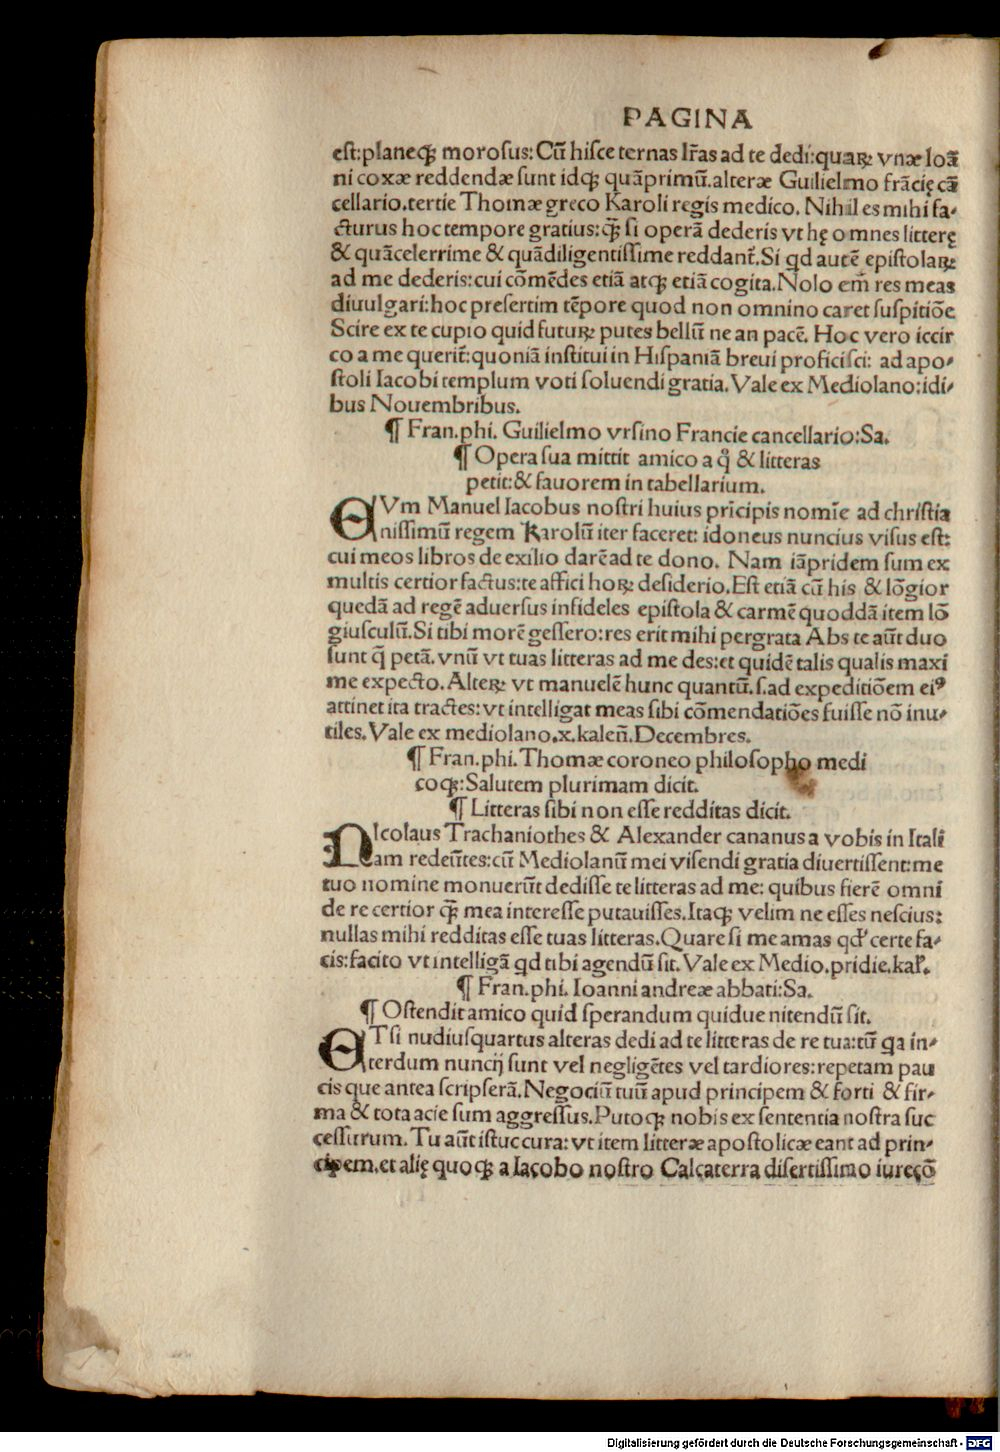 PAGINA
est:planeqꝫ morosus:Cū hisce ternas lr̄as ad te dedi:quaꝝ vnæ Ioā
ni coxæ reddendæ sunt idqꝫ quāprimū.alteræ Guilielmo frācię cā
cellario.tertie Thomæ greco Karoli regis medico. Nihil es mihi fa-
cturus hoc tempore gratius:q̄ꝫ si operā dederis vt hę omnes litterę
& quācelerrime & quādiligentissime reddant᷑. Si qd autē epistolaꝝ
ad me dederis:cui cōmēdes etiā atqꝫ etiā cogita. Nolo em̄ res meas
diuulgari:hoc presertim tēpore quod non omnino caret suspitiōe
Scire ex te cupio quid futuꝝ putes bellū ne an pacē. Hoc vero iccir
co a me querit᷑:quoniā institui in Hispaniā breui proficisci: ad apo-
stoli Iacobi templum voti soluendi gratia. Vale ex Mediolano:idi-
bus Nouembribus.
¶ Fran.phi. Guilielmo vrsino Francie cancellario:Sa.
¶ Opera sua mittit amico a q̊ & litteras
petit:& fauorem in tabellarium.
CVm Manuel Iacobus nostri huius prīcipis nomīe ad christia
nissimū regem Karolū iter faceret: idoneus nuncius visus est:
cui meos libros de exilio darē ad te dono. Nam iāpridem sum ex
multis certior factus:te affici hoꝝ desiderio. Est etiā cū his & lōgior
quedā ad regē aduersus infideles epistola & carmē quoddā item lō
giusculū. Si tibi morē gessero:res erit mihi pergrata Abs te aūt duo
sunt q̄ petā. vnū vt tuas litteras ad me des:et quidē talis qualis maxi
me expecto. Alteꝝ vt manuelē hunc quantū.s.ad expeditiōem eiꝰ
attinet ita tractes: vt intelligat meas sibi cōmendatiōes fuisse nō inu-
tiles. Vale ex mediolano.x.kaleñ.Decembres.
¶ Fran.phi. Thomæ coroneo philosopho medi
coqꝫ:Salutem plurimam dicit.
¶ Litteras sibi non esse redditas dicit.
NIcolaus Trachaniothes & Alexander cananus a vobis in Itali
am redeūtes:cū Mediolanū mei visendi gratia diuertissent:me
tuo nomine monuerūt dedisse te litteras ad me: quibus fierē omni
de re certior q̄ꝫ mea interesse putauisses. Itaqꝫ velim ne esses nescius:
nullas mihi redditas esse tuas litteras. Quare si me amas qd' certe fa-
cis:facito vt intelligā qd tibi agendū sit. Vale ex Medio.pridie.kaꝉ.
¶ Fran.phi. Ioanni andreæ abbati:Sa.
¶ Ostendit amico quid sperandum quidue nitendū sit.
ETsi nudiusquartus alteras dedi ad te litteras de re tua:tū qa in-
terdum nuncij sunt vel negligētes vel tardiores:repetam pau
cis que antea scripserā. Negociū tuū apud principem & forti & fir-
ma & tota acie sum aggressus. Putoqꝫ nobis ex sententia nostra suc
cessurum. Tu aūt istuc cura: vt item litteræ apostolicæ eant ad prin-
cipem.et alię quoqꝫ a Iacobo nostro Calcaterra disertissimo iurecō
Digitalisierung gefördert durch die Deutsche Forschungsgemeinschaft - DFG